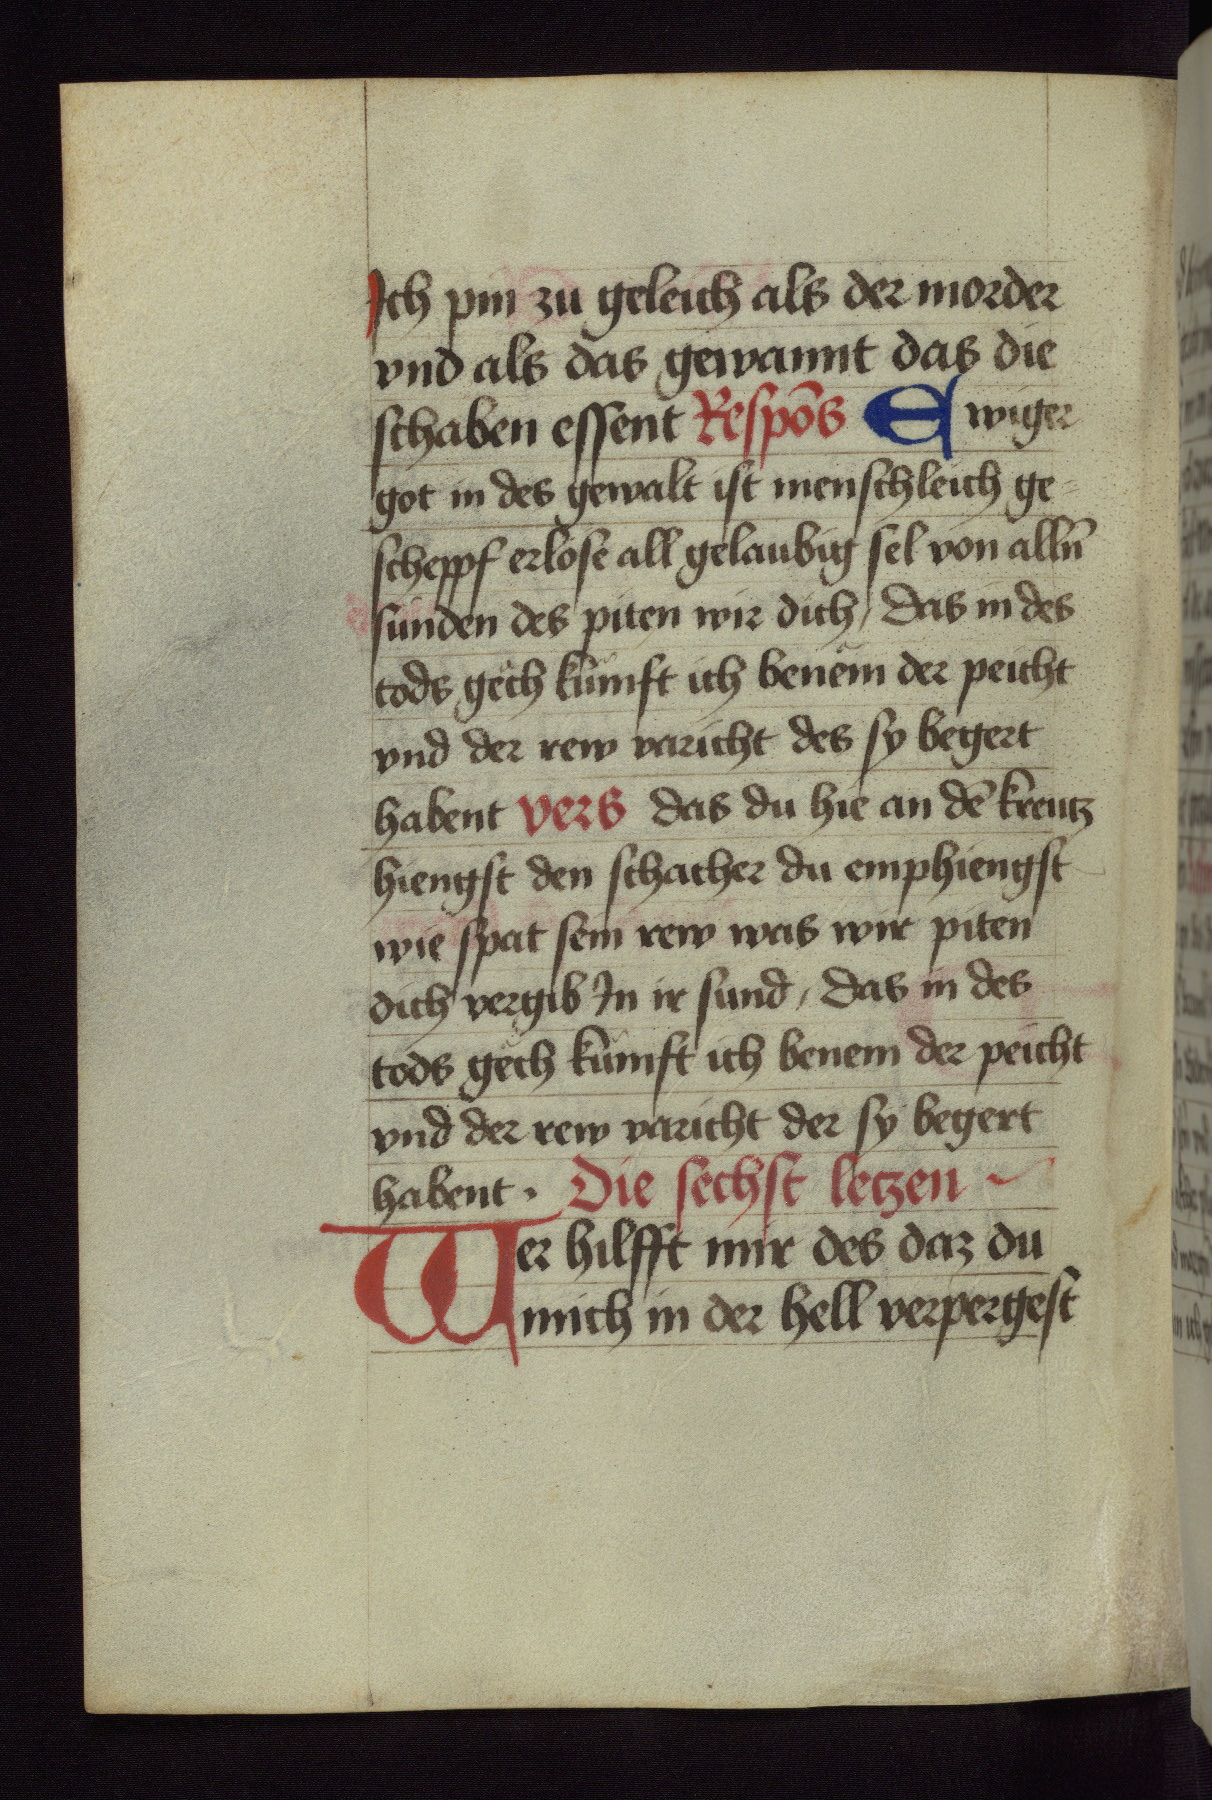 Ich pin zu geleich als der morder
vnd als das gewannt das die
schaben essent Respōs Ewiger
got in des gewalt ist menschleich ge-
scheppf erlose all gelaubig sel von alln̄
sunden des piten wir dich / Das in des
tods gëch kunft ich benëm der peicht
vnd der rew varicht des sy begert
habent vers das du hie an dē kreutz
hiengst den schacher du emphiengst
wie spat sein rew was wir piten
dich vergib In ir sund / Das in des
tods gëch kunft ich benem der peicht
vnd der rew varicht der sy begert
habent · Die sechst letzen ~
Wer hilfft mir des daz du
mich in der hell verpergest